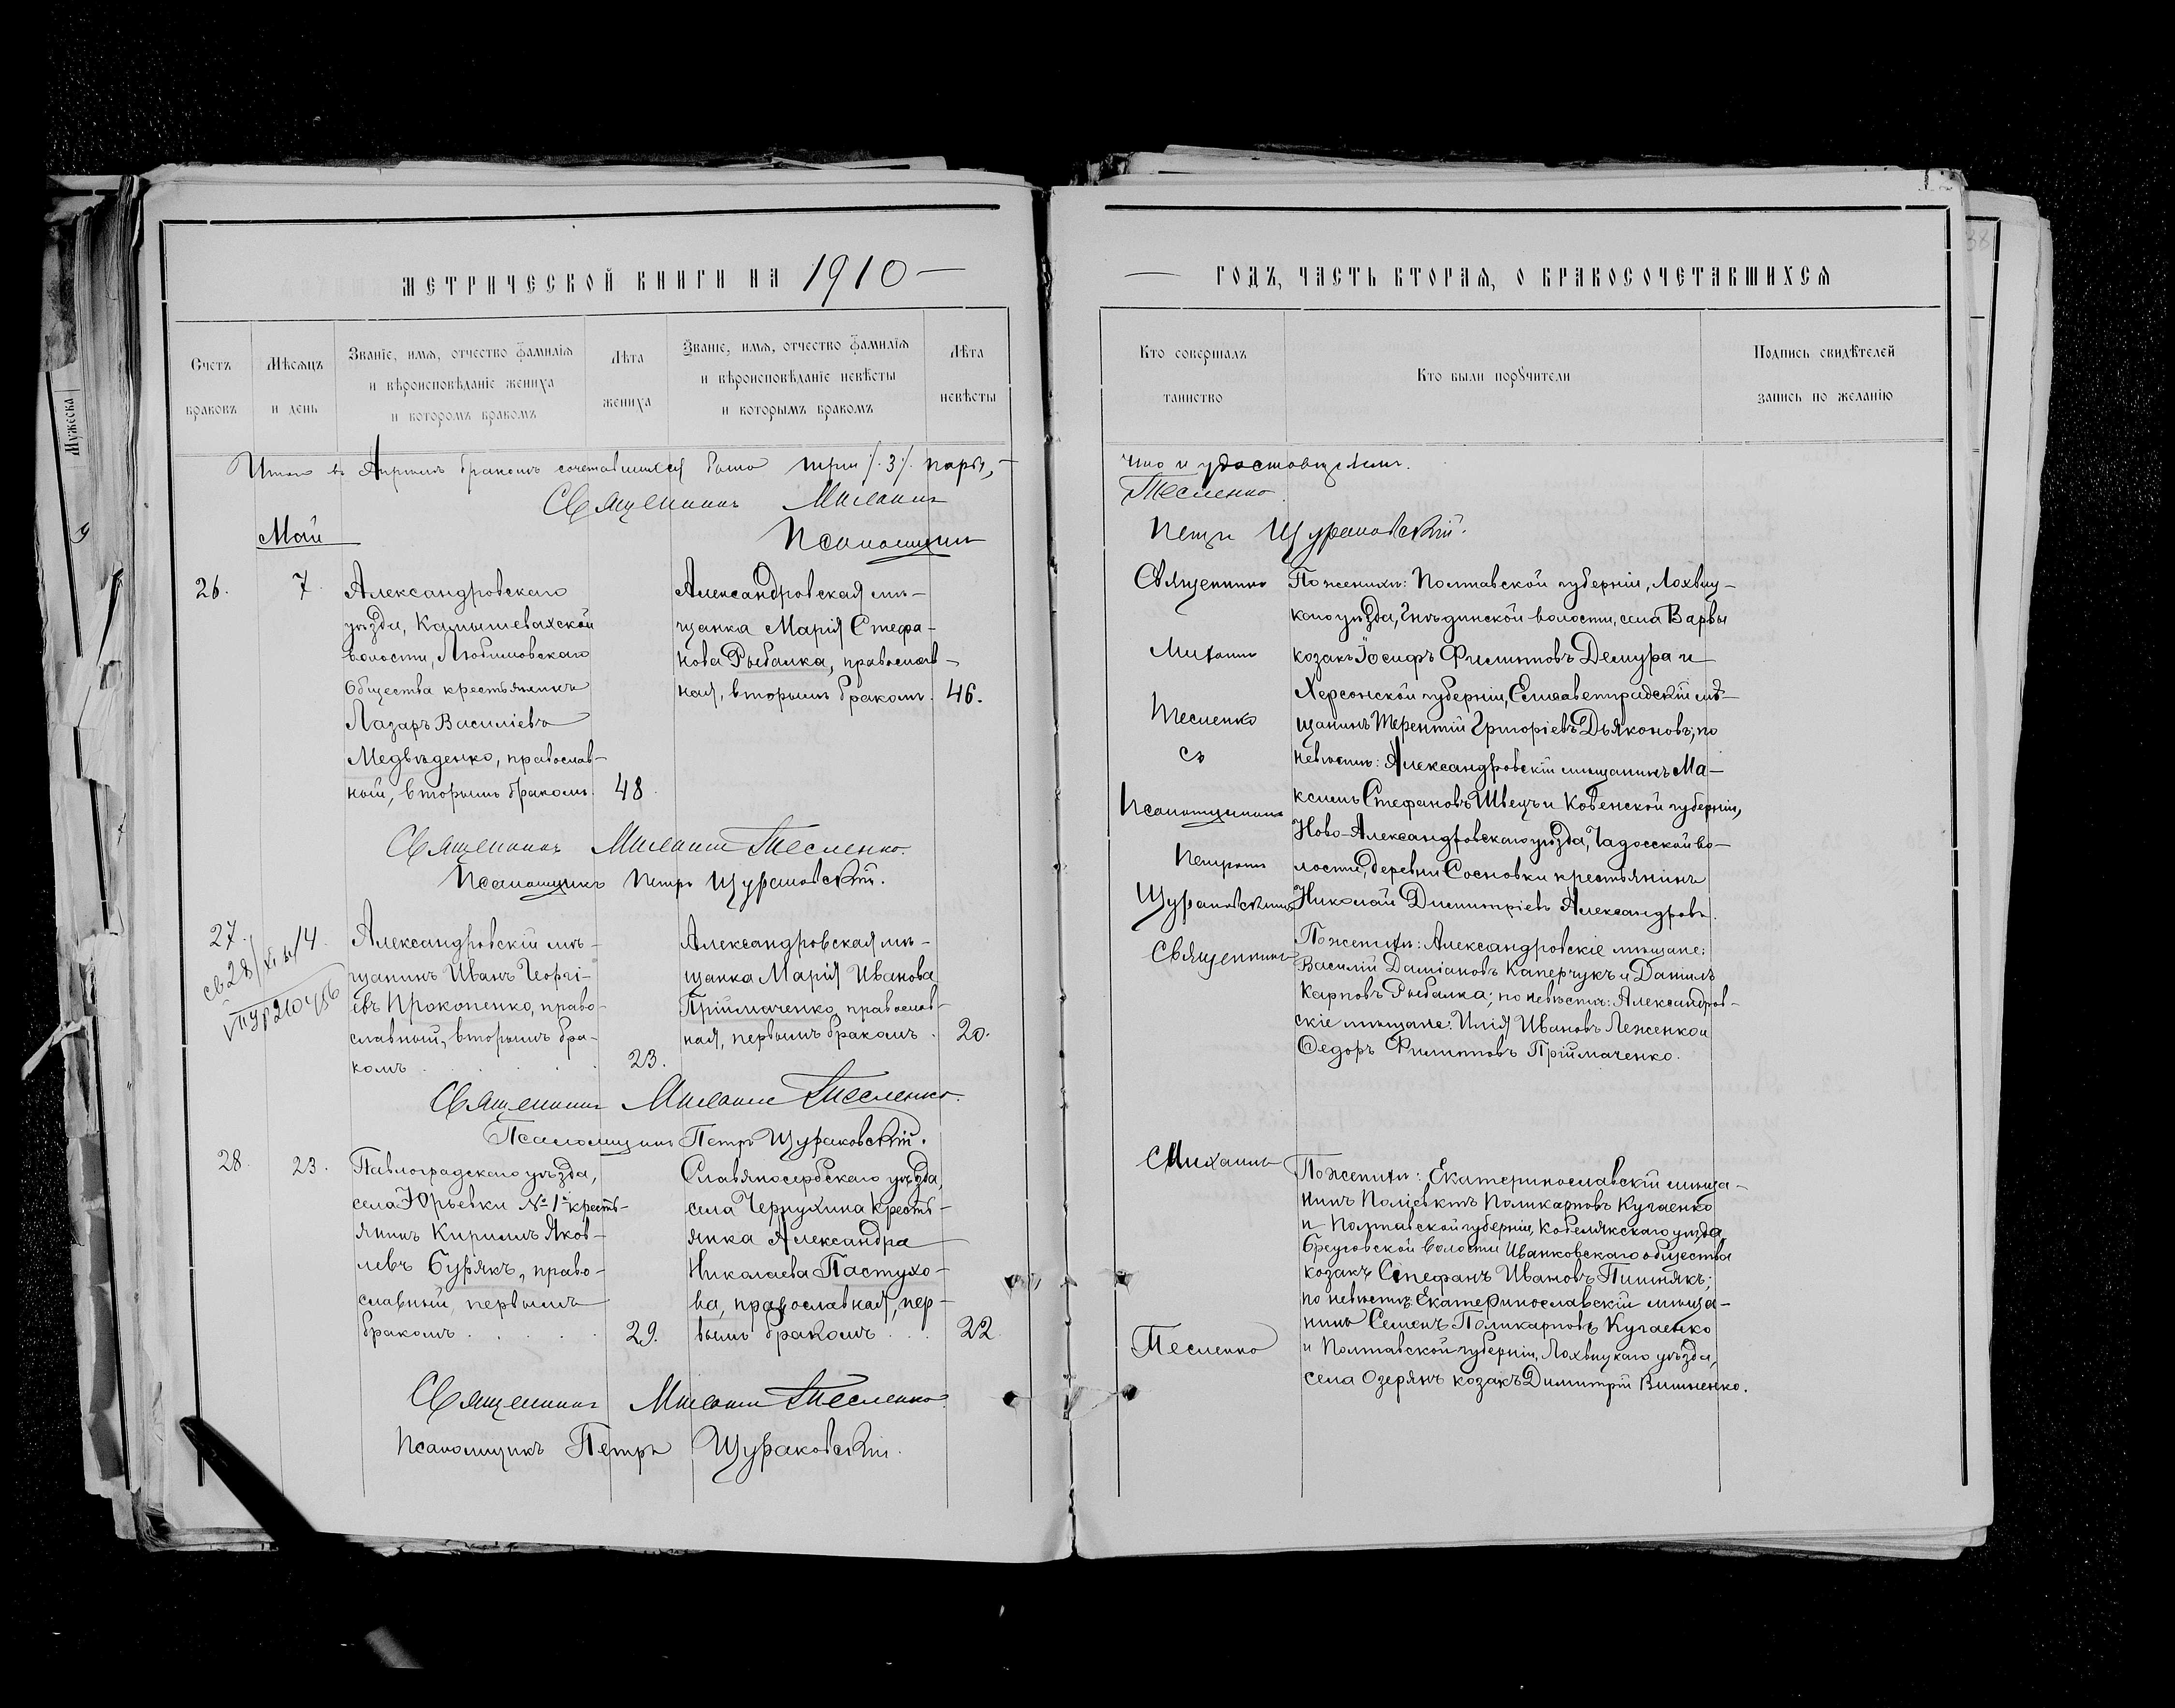 МЕТРИЧЕСКОЙ КНИГИ НА 1910
Счетъ браковъ
Мѣсяцъ и день
Званіе, имя, отчество фамилія
и вѣроисповѣданіе жениха
и которомъ бракомъ
Лѣта
жениха
Званіе, имя, отчество фамилія
и вѣроисповѣданіе невѣсты
и которымъ бракомъ
Лѣта
невѣсты
Итого въ Апрѣлѣ бракомъ сочетавшихся было три /.3/. пары,
Священникъ Михаилъ
Май
Псаломщикъ
26.
7.
Александровскаго
уѣзда, Камышевахской
волости, Любимовскаго
Общества крестьянинъ
Лазарь Василіевъ
Медвѣденко, православ-
ный, вторымъ бракомъ.
48
Александровская мѣ-
щанка Марія Стефа-
нова Рыбалка, православ-
ная, вторымъ бракомъ.
46.
Священникъ Михаилъ Тесленко.
Псаломщикъ Петръ Щураковскій.
27.
14.
св 28/XI
Александровскій мѣ-
щанинъ Иванъ Георгі-
евъ Прокопенко, право-
славный, вторымъ бра-
комъ
23.
Александровская мѣ-
щанка Марія Иванова
Пріймаченко, православ-
ная, первымъ бракомъ.
20.
Священникъ Михаилъ Тесленко.
Псаломщикъ Петръ Щураковскій.
28.
23.
Павлоградскаго уѣзда,
села Юрьевки № 1й кресть-
янинъ Кириллъ Яков-
левъ Бурякъ, право-
славный, первымъ
бракомъ
29.
Славяносербскаго уѣзда,
села Чернухина кресть-
янка Александра
Николаева Пастухо-
ва, православная, пер-
вымъ бракомъ
22
Священникъ Михаилъ Тесленко.
Псаломщикъ Петръ Щураковскій.
Мужеска
9
ГОДЪ, ЧАСТЬ ВТОРАЯ, О БРАКОСОЧЕТАВШИХСЯ
38
Кто совершалъ
таинство
Кто были поручители
Подпись свидѣтелей
запись по желанію
что и удостовѣряемъ.
Тесленко.
Петръ Щураковскій.
Священникъ
Михаилъ
Тесленко
съ
Псаломщикомъ
Петромъ
Щураковскимъ
По женихѣ: Полтавской губерніи, Лохвиц-
каго уѣзда, Гнѣдинской волости, села Варвы
козакъ Іосифъ Филипповъ Демура и
Херсонской губерніи, Елисаветградскій мѣ-
щанинъ Терентій Григоріевъ Дьяконовъ; по
невѣстѣ: Александровскій мѣщанинъ Ма-
ксимъ Стефановъ Швецъ и Ковенской губерніи,
Ново-Александровскаго уѣзда, Гадосской во-
лости, деревни Сосновки крестьянинъ
Николай Димитріевъ Александровъ.
Священникъ
По женихѣ: Александровскіе мѣщане:
Василій Даміановъ Каперчукъ и Даніилъ
Карповъ Рыбалка; по невѣстѣ: Александров-
скіе мѣщане: Илія Ивановъ Леженко и
Ѳедоръ Филипповъ Пріймаченко.
Михаилъ
Тесленко
По женихѣ: Екатеринославскій мѣща-
нинъ Поліевктъ Поликарповъ Кугаенко
и Полтавской губерніи, Кобелякскаго уѣзда,
Бреусовской волости Иванковскаго общества
козакъ Стефанъ Ивановъ Пишнякъ;
по невѣстѣ: Екатеринославскій мѣща-
нинъ Семенъ Поликарповъ Кугаенко
и Полтавской губерніи, Лохвицкаго уѣзда,
села Озерянъ козакъ Димитрій Вишненко.